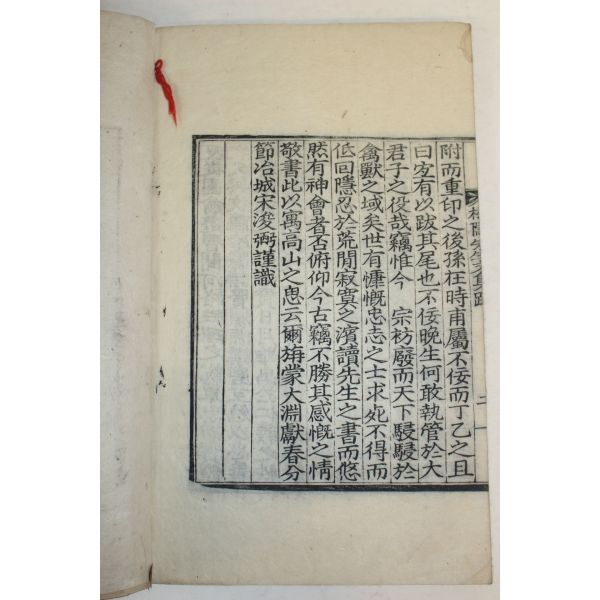 附而重印之後孫在時甫屬不佞而丁乙之且
曰宜有以跋其尾也不佞晚生何敢執管於大
君子之役哉竊惟今 宗祊廢而天下駸駸於
禽獸之域矣世有慷慨忠志之士求死不得而
低回隱忍於荒閒寂寞之濱讀先生之書而悠
然有神會者否俯仰今古竊不勝其感慨之情
敬書此以寓高山之思云爾旃蒙大淵獻春分
節冶城宋浚弼謹識